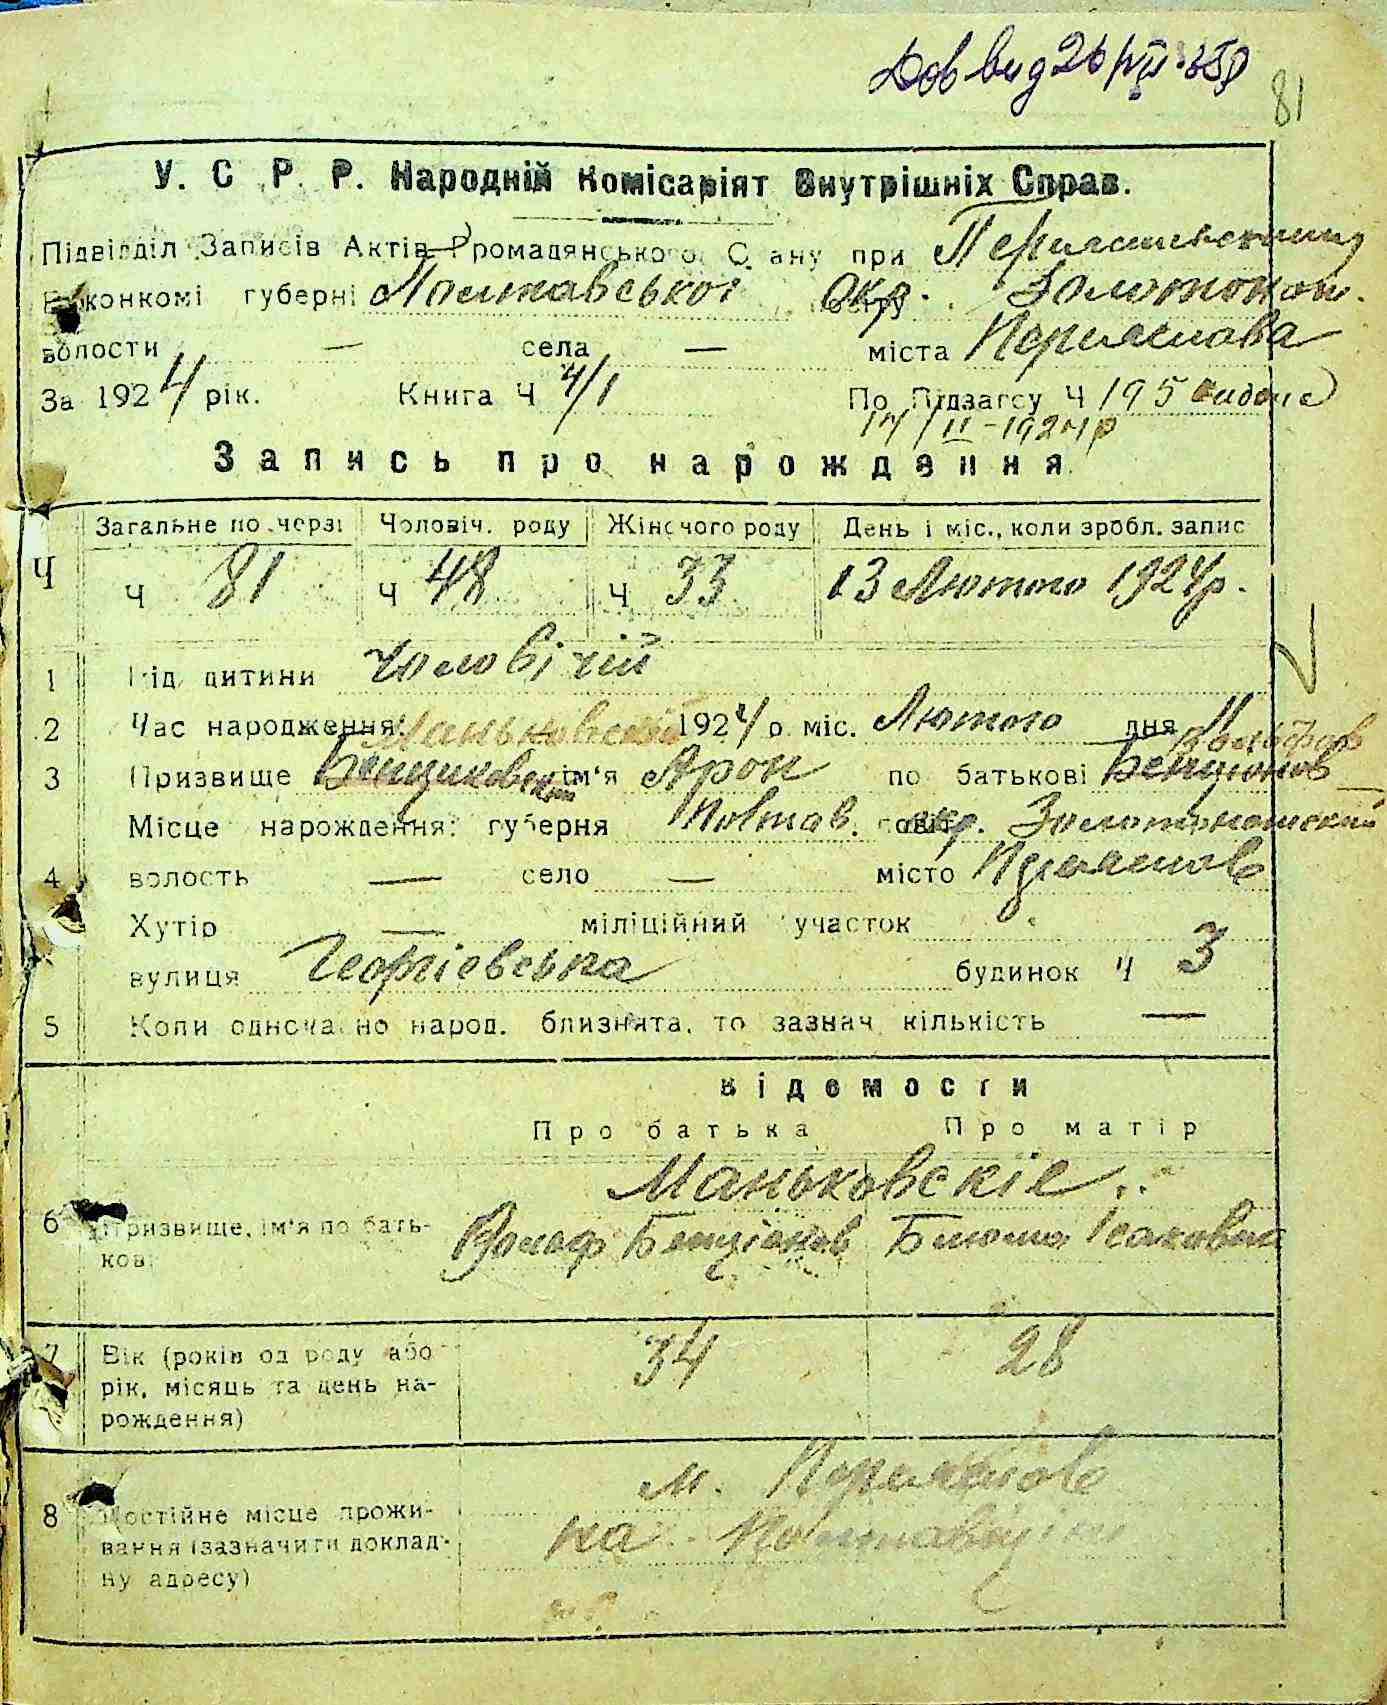 Дов вид 26/VII-35р
81
У. С. Р. Р. Народній Комісаріят Внутрішніх Справ.
Підвідділ Записів Актів Громадянського Стану при
Виконкомі губерні Полтавської Окр. Золотонош.
волости — села — міста Переяслава
За 1924 рік. Книга Ч 4/1 По Підзагсу Ч 195
14/II-1924р
Запись про нарождення
Загальне по черзі Чоловіч. роду Жіночого роду День і міс., коли зробл. запис
Ч Ч 81 Ч 48 Ч 33 13 Лютого 1924р.
1 Рід дитини Чоловічій
2 Час народження: 1924 р. міс. Лютого дня 11
Маньковский Вольфов
3 Призвище ім'я Арон по батькові Бенционов
Місце нарождення: губерня Полтав. окр. Золотоношский
4 волость — село — місто Переяслов
Хутір — міліційний участок
вулиця Георгієвська будинок Ч 3
5 Коли одночасно народ. близнята, то зазнач. кількість —
Відомости
Про батька Про матір
Маньковскіе
6 Призвище, ім'я по бать- Вольф Бенціонов Блюма Ісаковна
кові
7 Вік (років од роду або 34 28
рік, місяць та день на-
рождення)
м. Переяслов
8 Постійне місце прожи-
вання (зазначити доклад- на Полтавщині
ну адресу)